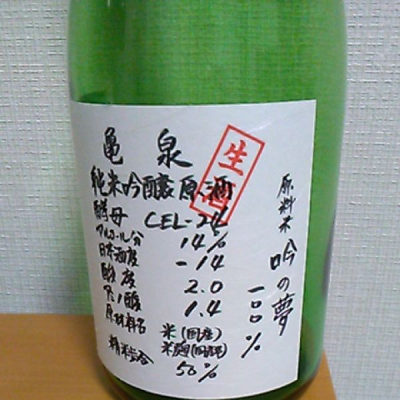 亀泉
生酒
純米吟醸原酒
酵母 CEL-24
アルコール分 14%
日本酒度 -14
酸度 2.0
アミノ酸 1.4
原材料名 米(国産)
米麹(国産米)
精米歩合 50%
原料米 吟の夢
一〇〇%